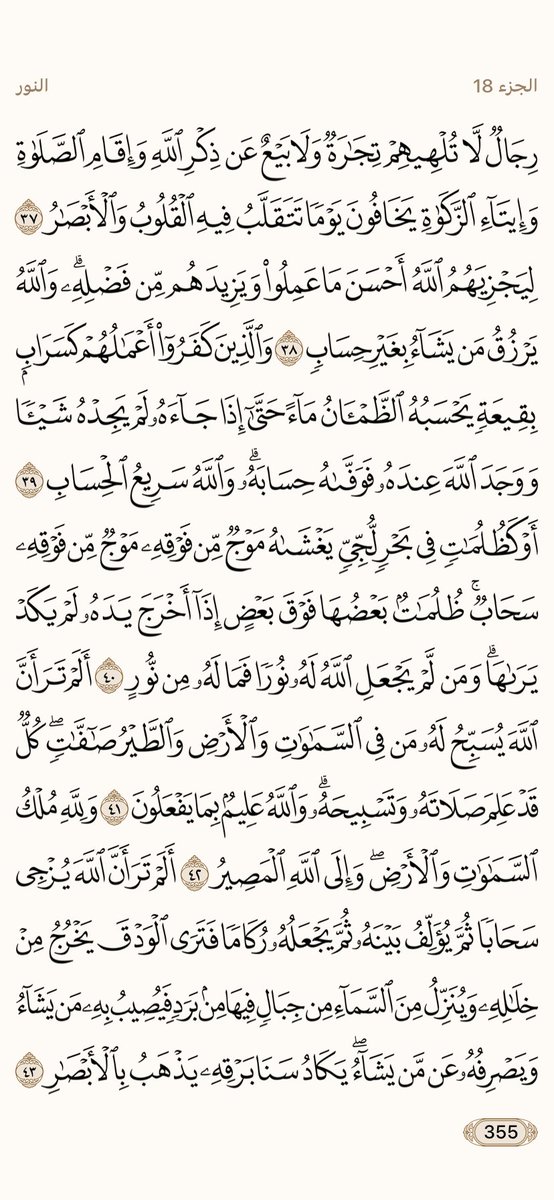 الجزء 18
النور
رِجَالٌ لَّا تُلْهِيهِمْ تِجَـٰرَةٌ وَلَا بَيْعٌ عَن ذِكْرِ ٱللَّهِ وَإِقَامِ ٱلصَّلَوٰةِ
وَإِيتَآءِ ٱلزَّكَوٰةِ يَخَافُونَ يَوْمًا تَتَقَلَّبُ فِيهِ ٱلْقُلُوبُ وَٱلْأَبْصَـٰرُ ٣٧
لِيَجْزِيَهُمُ ٱللَّهُ أَحْسَنَ مَا عَمِلُوا۟ وَيَزِيدَهُم مِّن فَضْلِهِۦ ۗ وَٱللَّهُ
يَرْزُقُ مَن يَشَآءُ بِغَيْرِ حِسَابٍ ٣٨ وَٱلَّذِينَ كَفَرُوٓا۟ أَعْمَـٰلُهُمْ كَسَرَابٍۭ
بِقِيعَةٍ يَحْسَبُهُ ٱلظَّمْـَٔانُ مَآءً حَتَّىٰٓ إِذَا جَآءَهُۥ لَمْ يَجِدْهُ شَيْـًٔا
وَوَجَدَ ٱللَّهَ عِندَهُۥ فَوَفَّىٰهُ حِسَابَهُۥ ۗ وَٱللَّهُ سَرِيعُ ٱلْحِسَابِ ٣٩
أَوْ كَظُلُمَـٰتٍ فِى بَحْرٍ لُّجِّىٍّ يَغْشَىٰهُ مَوْجٌ مِّن فَوْقِهِۦ مَوْجٌ مِّن فَوْقِهِۦ
سَحَابٌ ۚ ظُلُمَـٰتٌۢ بَعْضُهَا فَوْقَ بَعْضٍ إِذَآ أَخْرَجَ يَدَهُۥ لَمْ يَكَدْ
يَرَىٰهَا ۗ وَمَن لَّمْ يَجْعَلِ ٱللَّهُ لَهُۥ نُورًا فَمَا لَهُۥ مِن نُّورٍ ٤٠ أَلَمْ تَرَ أَنَّ
ٱللَّهَ يُسَبِّحُ لَهُۥ مَن فِى ٱلسَّمَـٰوَٰتِ وَٱلْأَرْضِ وَٱلطَّيْرُ صَـٰٓفَّـٰتٍ ۖ كُلٌّ
قَدْ عَلِمَ صَلَاتَهُۥ وَتَسْبِيحَهُۥ ۗ وَٱللَّهُ عَلِيمٌۢ بِمَا يَفْعَلُونَ ٤١ وَلِلَّهِ مُلْكُ
ٱلسَّمَـٰوَٰتِ وَٱلْأَرْضِ ۖ وَإِلَى ٱللَّهِ ٱلْمَصِيرُ ٤٢ أَلَمْ تَرَ أَنَّ ٱللَّهَ يُزْجِى
سَحَابًا ثُمَّ يُؤَلِّفُ بَيْنَهُۥ ثُمَّ يَجْعَلُهُۥ رُكَامًا فَتَرَى ٱلْوَدْقَ يَخْرُجُ مِنْ
خِلَـٰلِهِۦ وَيُنَزِّلُ مِنَ ٱلسَّمَآءِ مِن جِبَالٍ فِيهَا مِنۢ بَرَدٍ فَيُصِيبُ بِهِۦ مَن يَشَآءُ
وَيَصْرِفُهُۥ عَن مَّن يَشَآءُ ۖ يَكَادُ سَنَا بَرْقِهِۦ يَذْهَبُ بِٱلْأَبْصَـٰرِ ٤٣
355